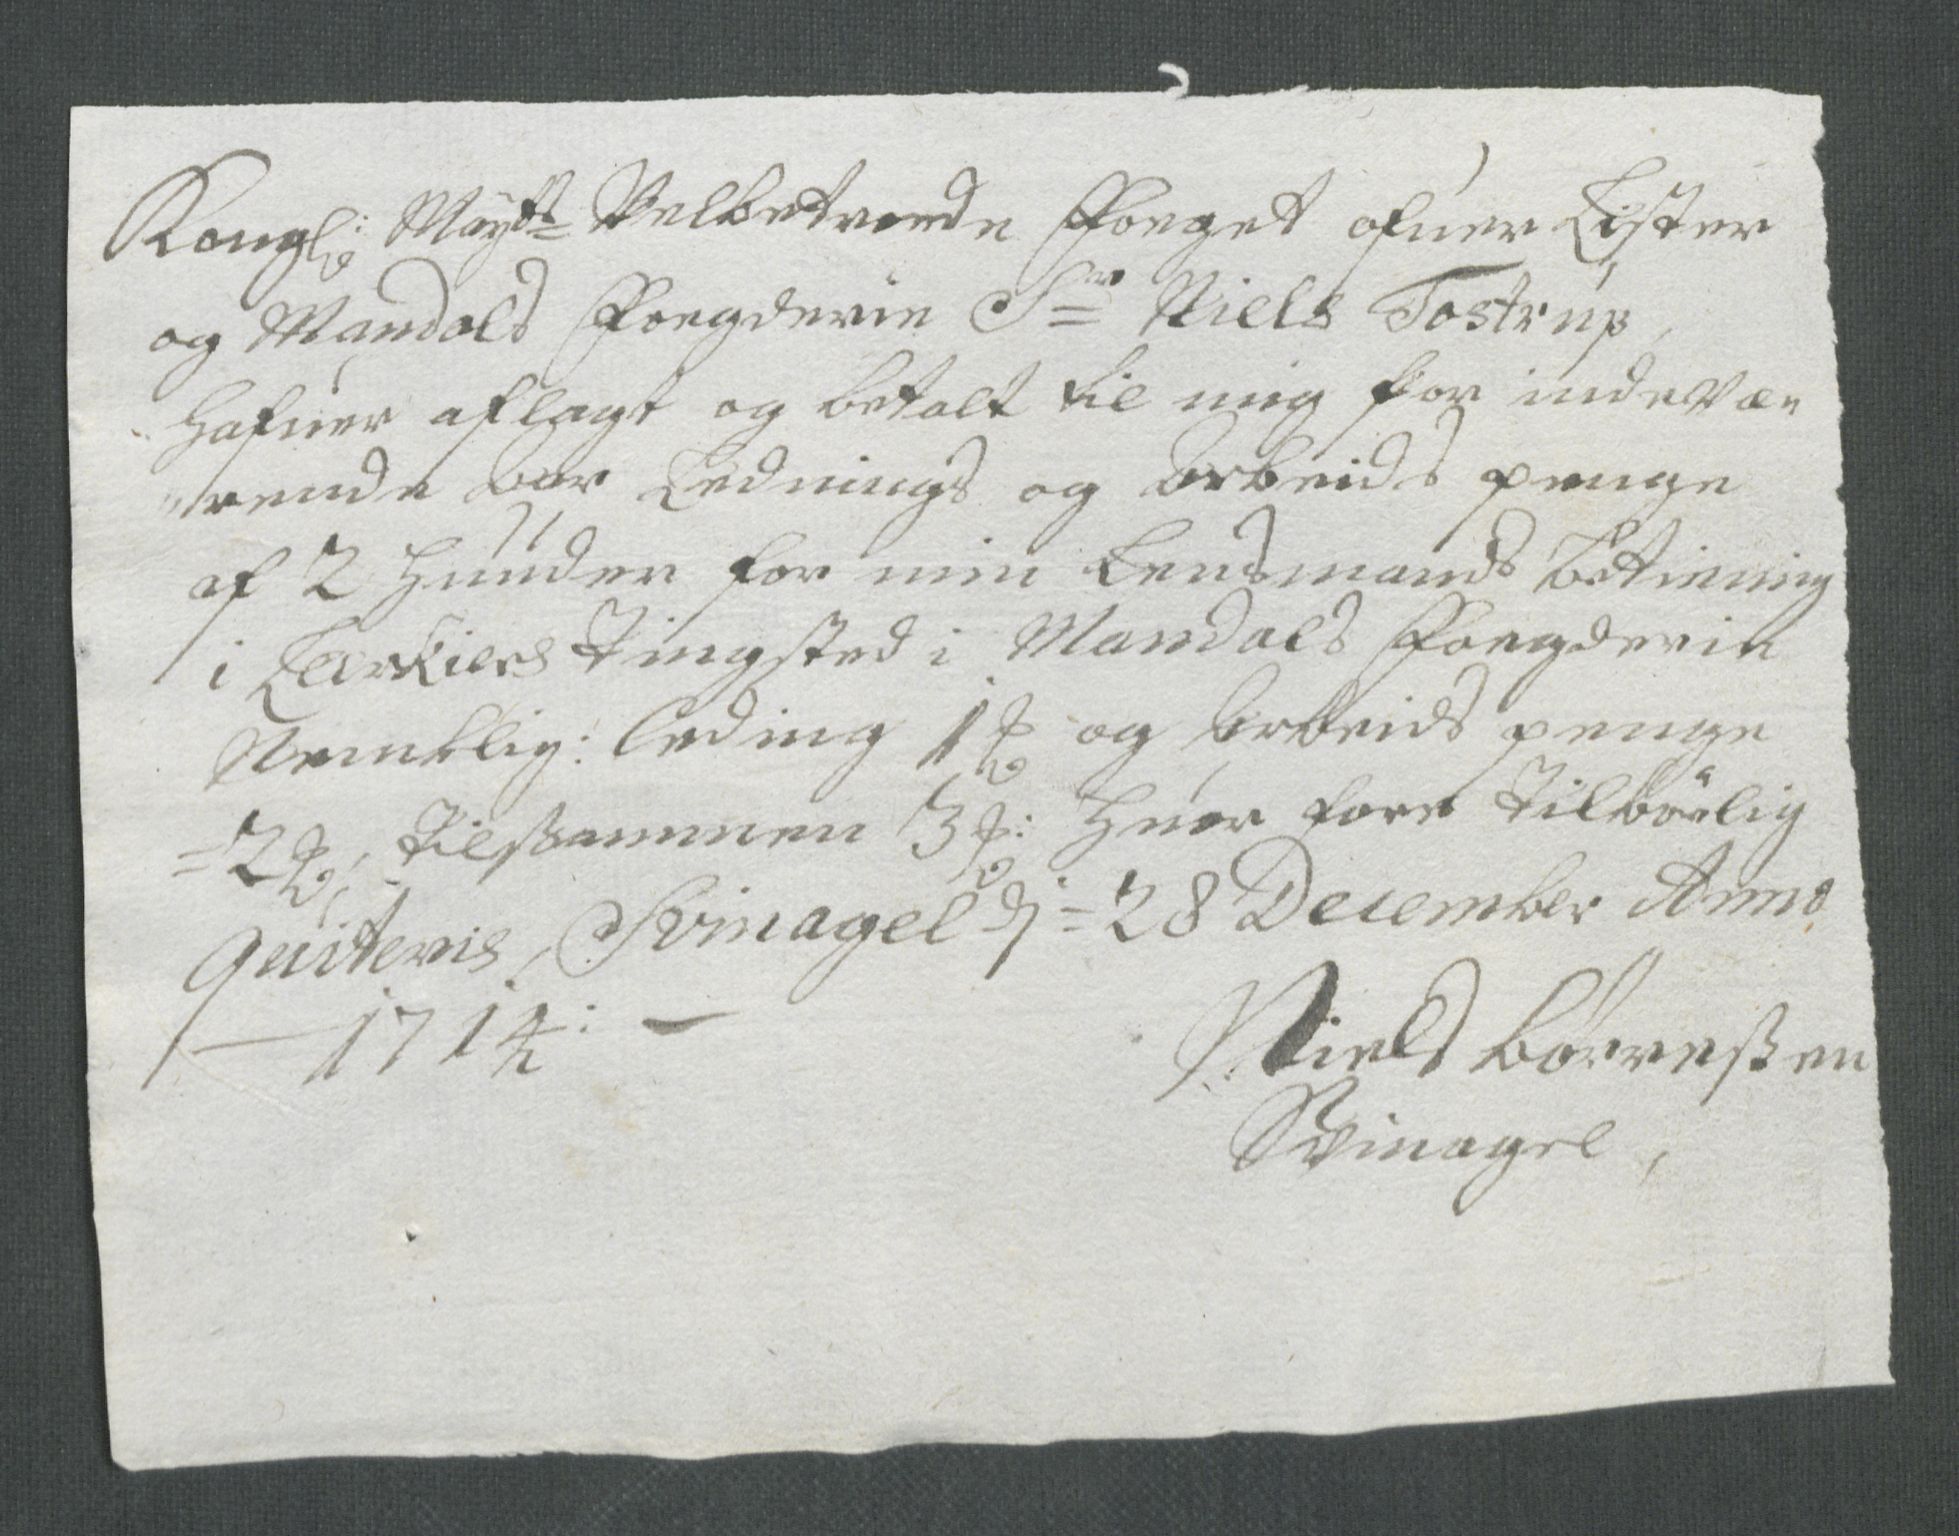 Kongl: Mayts Velbetroede Foeget ofuer Lister
og Mandals Foegderie Sr Niels Tostrup,
hafuer aflagt og betalt til mig for indevæ-
rende aar Lednings og arbeids penge
af 2 Hunder for min Lensmands Betiening
i Tingsted i Mandals Foegderie
Nemblig: Leding 1 og arbeids penge
=2, tilßammen 3: Huor fore tilbörlig
quiteris, Svinagel dj=28 December Anno
—1714: —
Niels Börreßen
Svinagel,